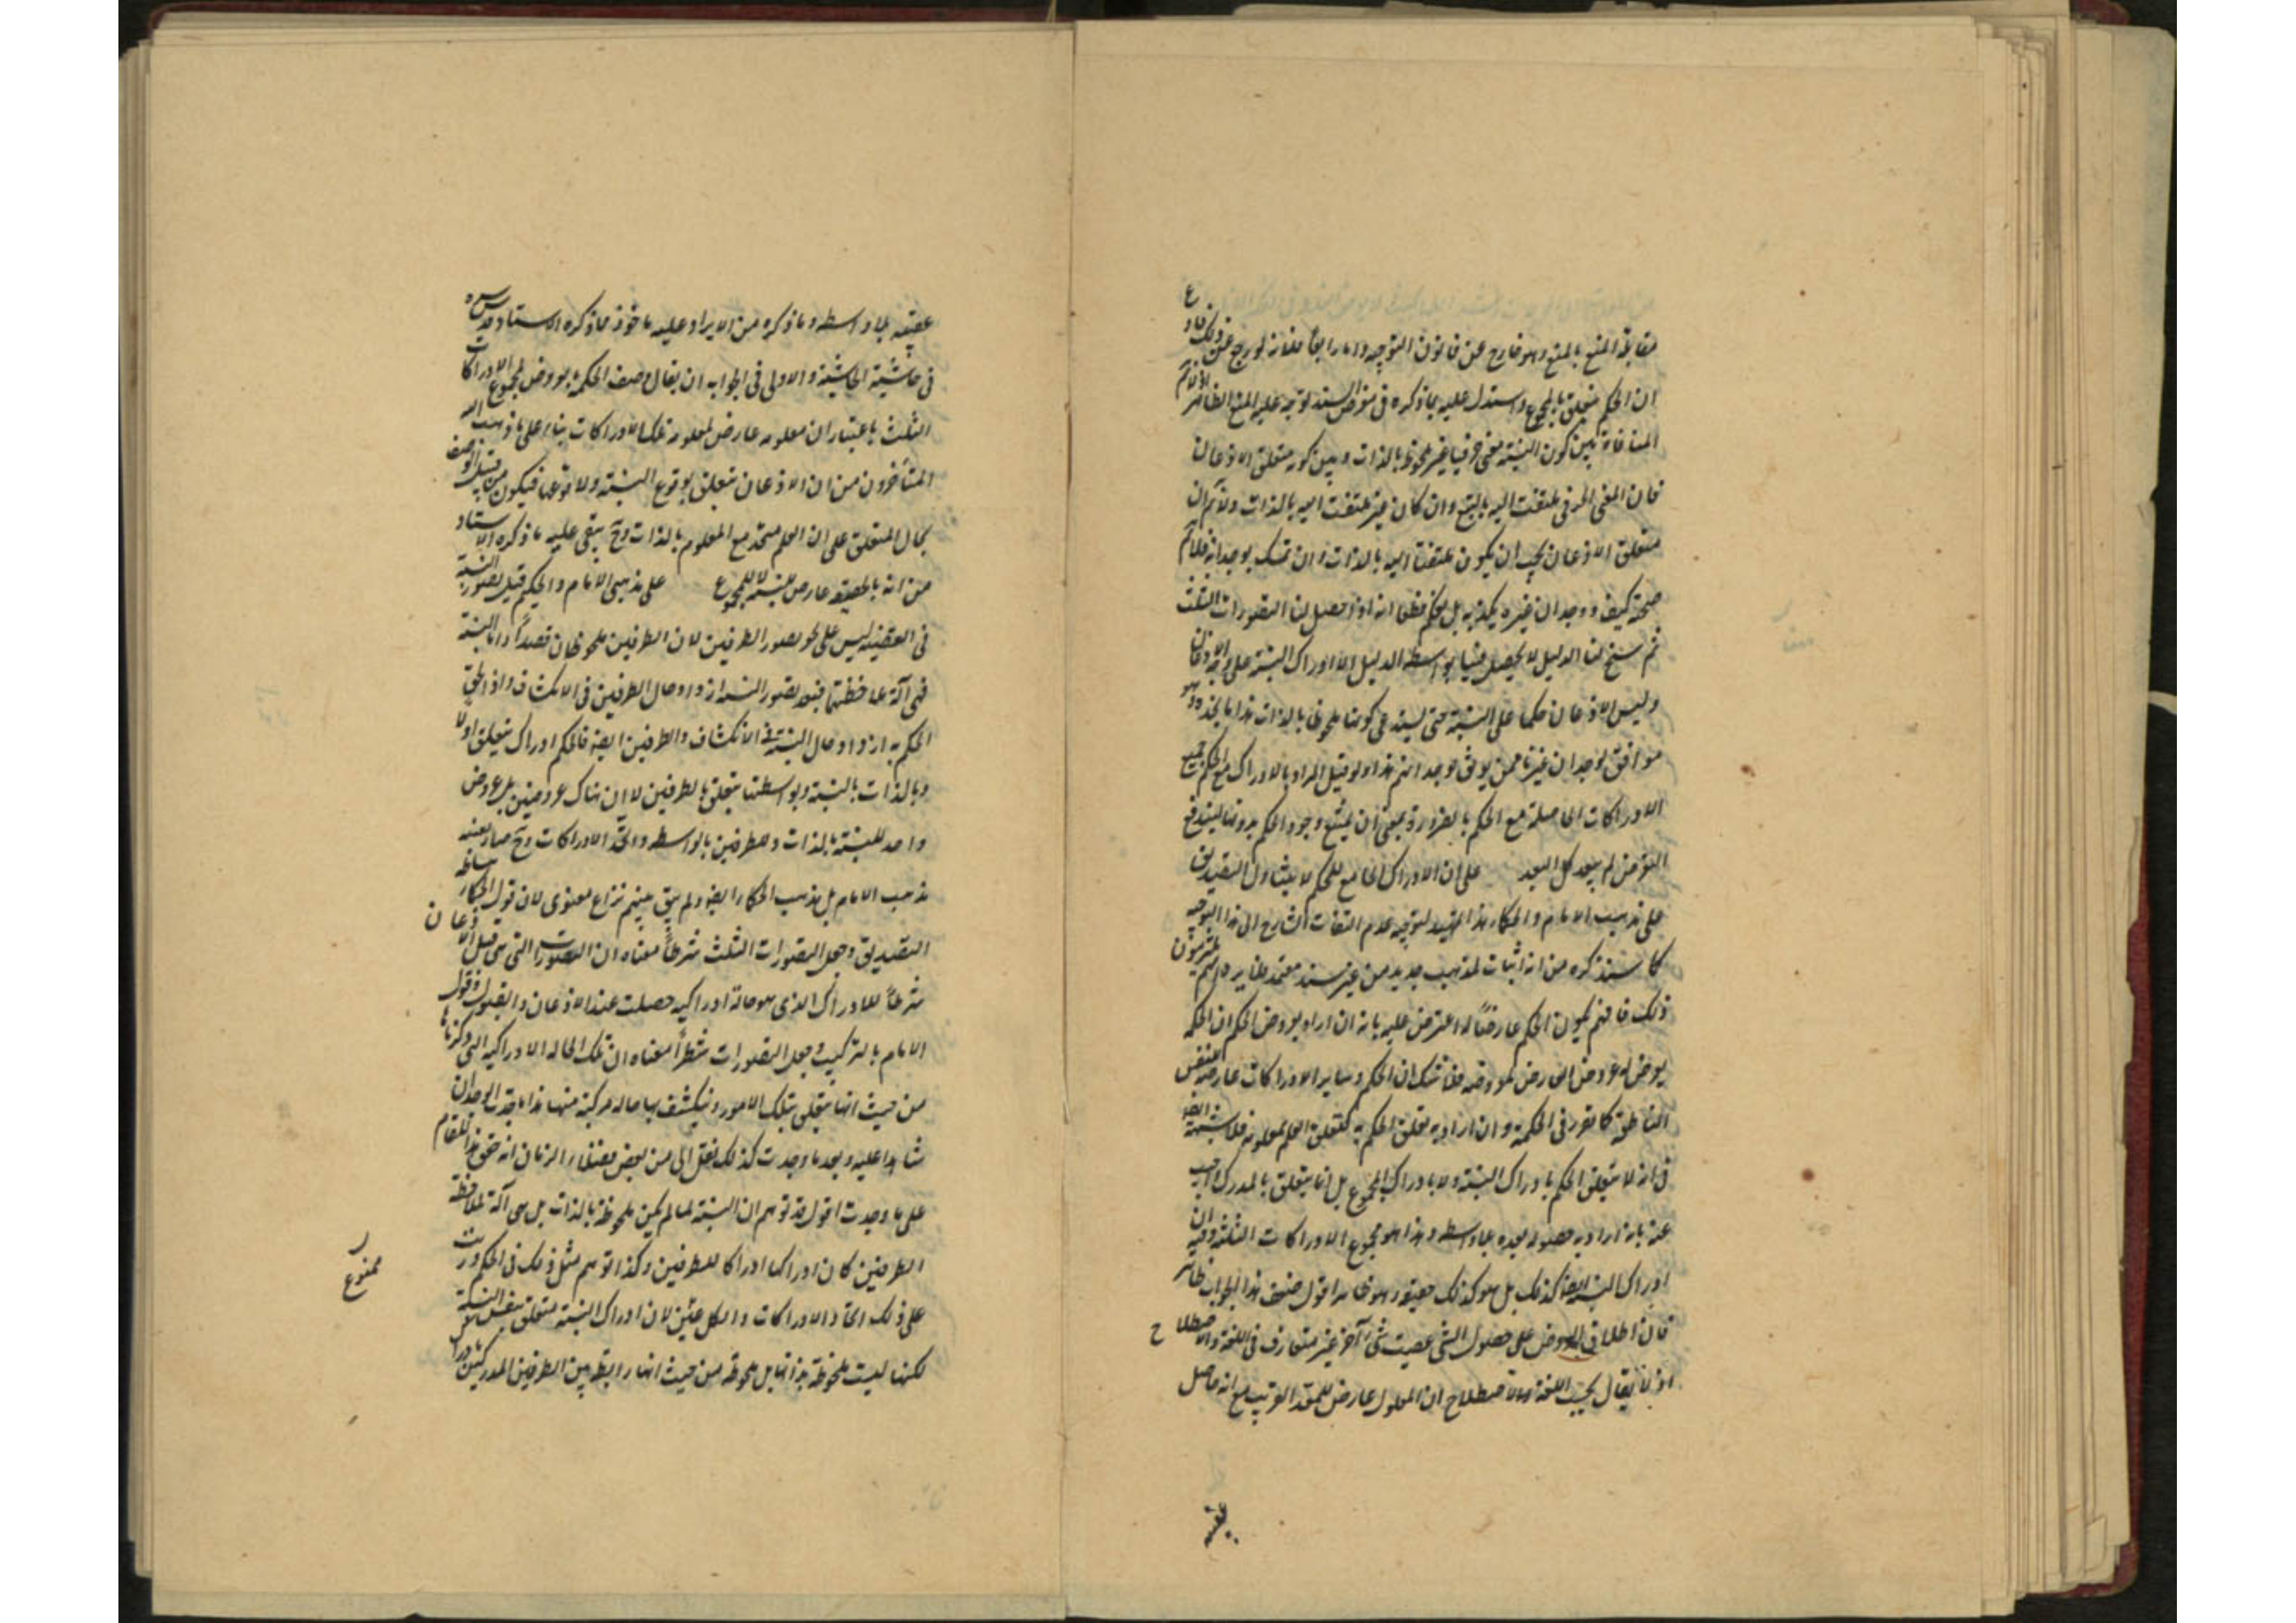 مقابلة المنع بالمنع وهو خارج عن قانون التوجيه واما رابعا فلانه لو رجع عن ذلك وادعى
ان الحكم متعلق بالمجموع واستدل عليه بما ذكره في معرض السند لتوجه عليه المنع الظاهر اذ لانم
المنافاة بين كون النسبة معنى حرفيا غير ملحوظ بالذات وبين كونه متعلق الاذعان
فان المعنى الحرفي ملتفت اليه بالتبع وان كان غير ملتفت اليه بالذات ولانم ان
متعلق الاذعان يجب ان يكون ملتفتا اليه بالذات وان تمسك بوجدانه فلانم
صحته كيف ووجدان غيره يكذبه بل يحكم قطعا انه اذا حصل لنا التصورات الثلث
ثم سنح لنا الدليل لا يحصل فينا بواسطة الدليل الا ادراك النسبة على وجه الاذعان
وليس الاذعان حكما على النسبة حتى يستدعى كونها ملحوظا بالذات هذا ما نجده وهو
موافق لوجدان غيرنا ممن يوثق بوجدانهم هذا ولو قيل المراد بالادراك مع الحكم جميع
الادراكات الحاصلة مع الحكم بالضرورة بمعنى ان يمتنع وجود الحكم بدونها ليندفع
النقوض لم يبعد كل البعد على ان الادراك الجامع للحكم لا يتناول التصديق
على مذهب الامام والحكماء هذا تمهيد لتوجيه عدم التفات الشارح الى هذا التوجيه
كما سنذكره من انه اثبات لمذهب جديد من غير سند معتمد فلا يرد انهم يلتزمون
ذلك فافهم يكون الحكم عارضا له اعترض عليه بانه ان اراد بعروض الحكم ان الحكم
يعرض له عروض العارض لمعروضه فلا شك ان الحكم وساير الادراكات عارضة للنفس
الناطقة كما تقرر في الحكمة وان اراد به تعلق الحكم به كتعلق العلم بمعلومه فلا شبهة ايضا
في انه لا يتعلق الحكم بادراك النسبة ولا بادراك المجموع بل انما يتعلق بالمدرك واجيب
عنه بانه اراد به حصوله بعده بلا واسطة وهذا هو مجموع الادراكات الثلثة وفيه ان
ادراك النسبة ايضا كذلك بل هو كذلك حقيقة وهو ظاهر اقول ضعف هذا الجواب ظاهر
فان اطلاق العروض على حصول الشئ عقيب شئ آخر غير متعارف في اللغة والاصطلاح
اذ لا يقال بحسب اللغة والاصطلاح ان المعلول عارض للمعد القريب مع انه حاصل
عقيبه
عقيبه بلا واسطة وما ذكره من الايراد عليه ماخوذ مما ذكره الاستاد قدس سره
في حاشية الحاشية والاولى في الجواب ان يقال وصف الحكم بعروض لمجموع الادراكات
الثلث باعتبار ان معلومه عارض لمعلوم تلك الادراكات بناء على ما ذهب اليه
المتاخرون من ان الاذعان متعلق بوقوع النسبة ولا وقوعها فيكون من قبيل الوصف
بحال المتعلق على ان العلم متحد مع المعلوم بالذات وح يبقى عليه ما ذكره الاستاد
من انه بالحقيقة عارض للنسبة لا للمجموع على مذهبي الامام والحكيم قيل تصور النسبة
في القضية ليس على نحو تصور الطرفين لان الطرفين ملحوظان قصدا واما النسبة
فهي آلة ملاحظتهما فبعد تصور النسبة ازداد حال الطرفين في الانكشاف واذا لحق
الحكم به ازداد حال النسبة في الانكشاف والطرفين ايضا فالحكم ادراك يتعلق اولا
وبالذات بالنسبة وبواسطتها يتعلق بالطرفين لا ان هناك عروضين بل عروض
واحد للنسبة بالذات وللطرفين بالواسطة واتحد الادراكات وح صار بعينه
مذهب الامام بل مذهب الحكماء ايضا ولم يبق بينهم نزاع معنوى لان قول الحكماء ببساطة
التصديق وجعل التصورات الثلث شرطا معناه ان التصورات التي هي قبل الاذعان
شرطا للادراك الذى هو حالة ادراكية حصلت عند الاذعان والقبول وقول
الامام بالتركيب وجعل التصورات شطرا معناه ان تلك الحالة الادراكية التي ذكرناها
من حيث انها يتعلق بتلك الامور وينكشف بها حاله مركبة منها هذا ما وجدت الوجدان
شاهدا عليه وبعد ما وجدت كذلك نقل الى من بعض فضلاء الزمان انه حقق هذا المقام
على ما وجدت اقول قد توهم ان النسبة لما لم يكن ملحوظة بالذات بل هي آلة لملاحظة
الطرفين كان ادراكها ادراكا للطرفين وكذا توهم مثل ذلك في الحكم ورتب
على ذلك اتحاد الادراكات والكل ممنوع لان ادراك النسبة متعلق بنفس النسبة
لكنها ليست ملحوظة بذاتها بل ملحوظة من حيث انها رابطة بين الطرفين المدركين
ممنوع